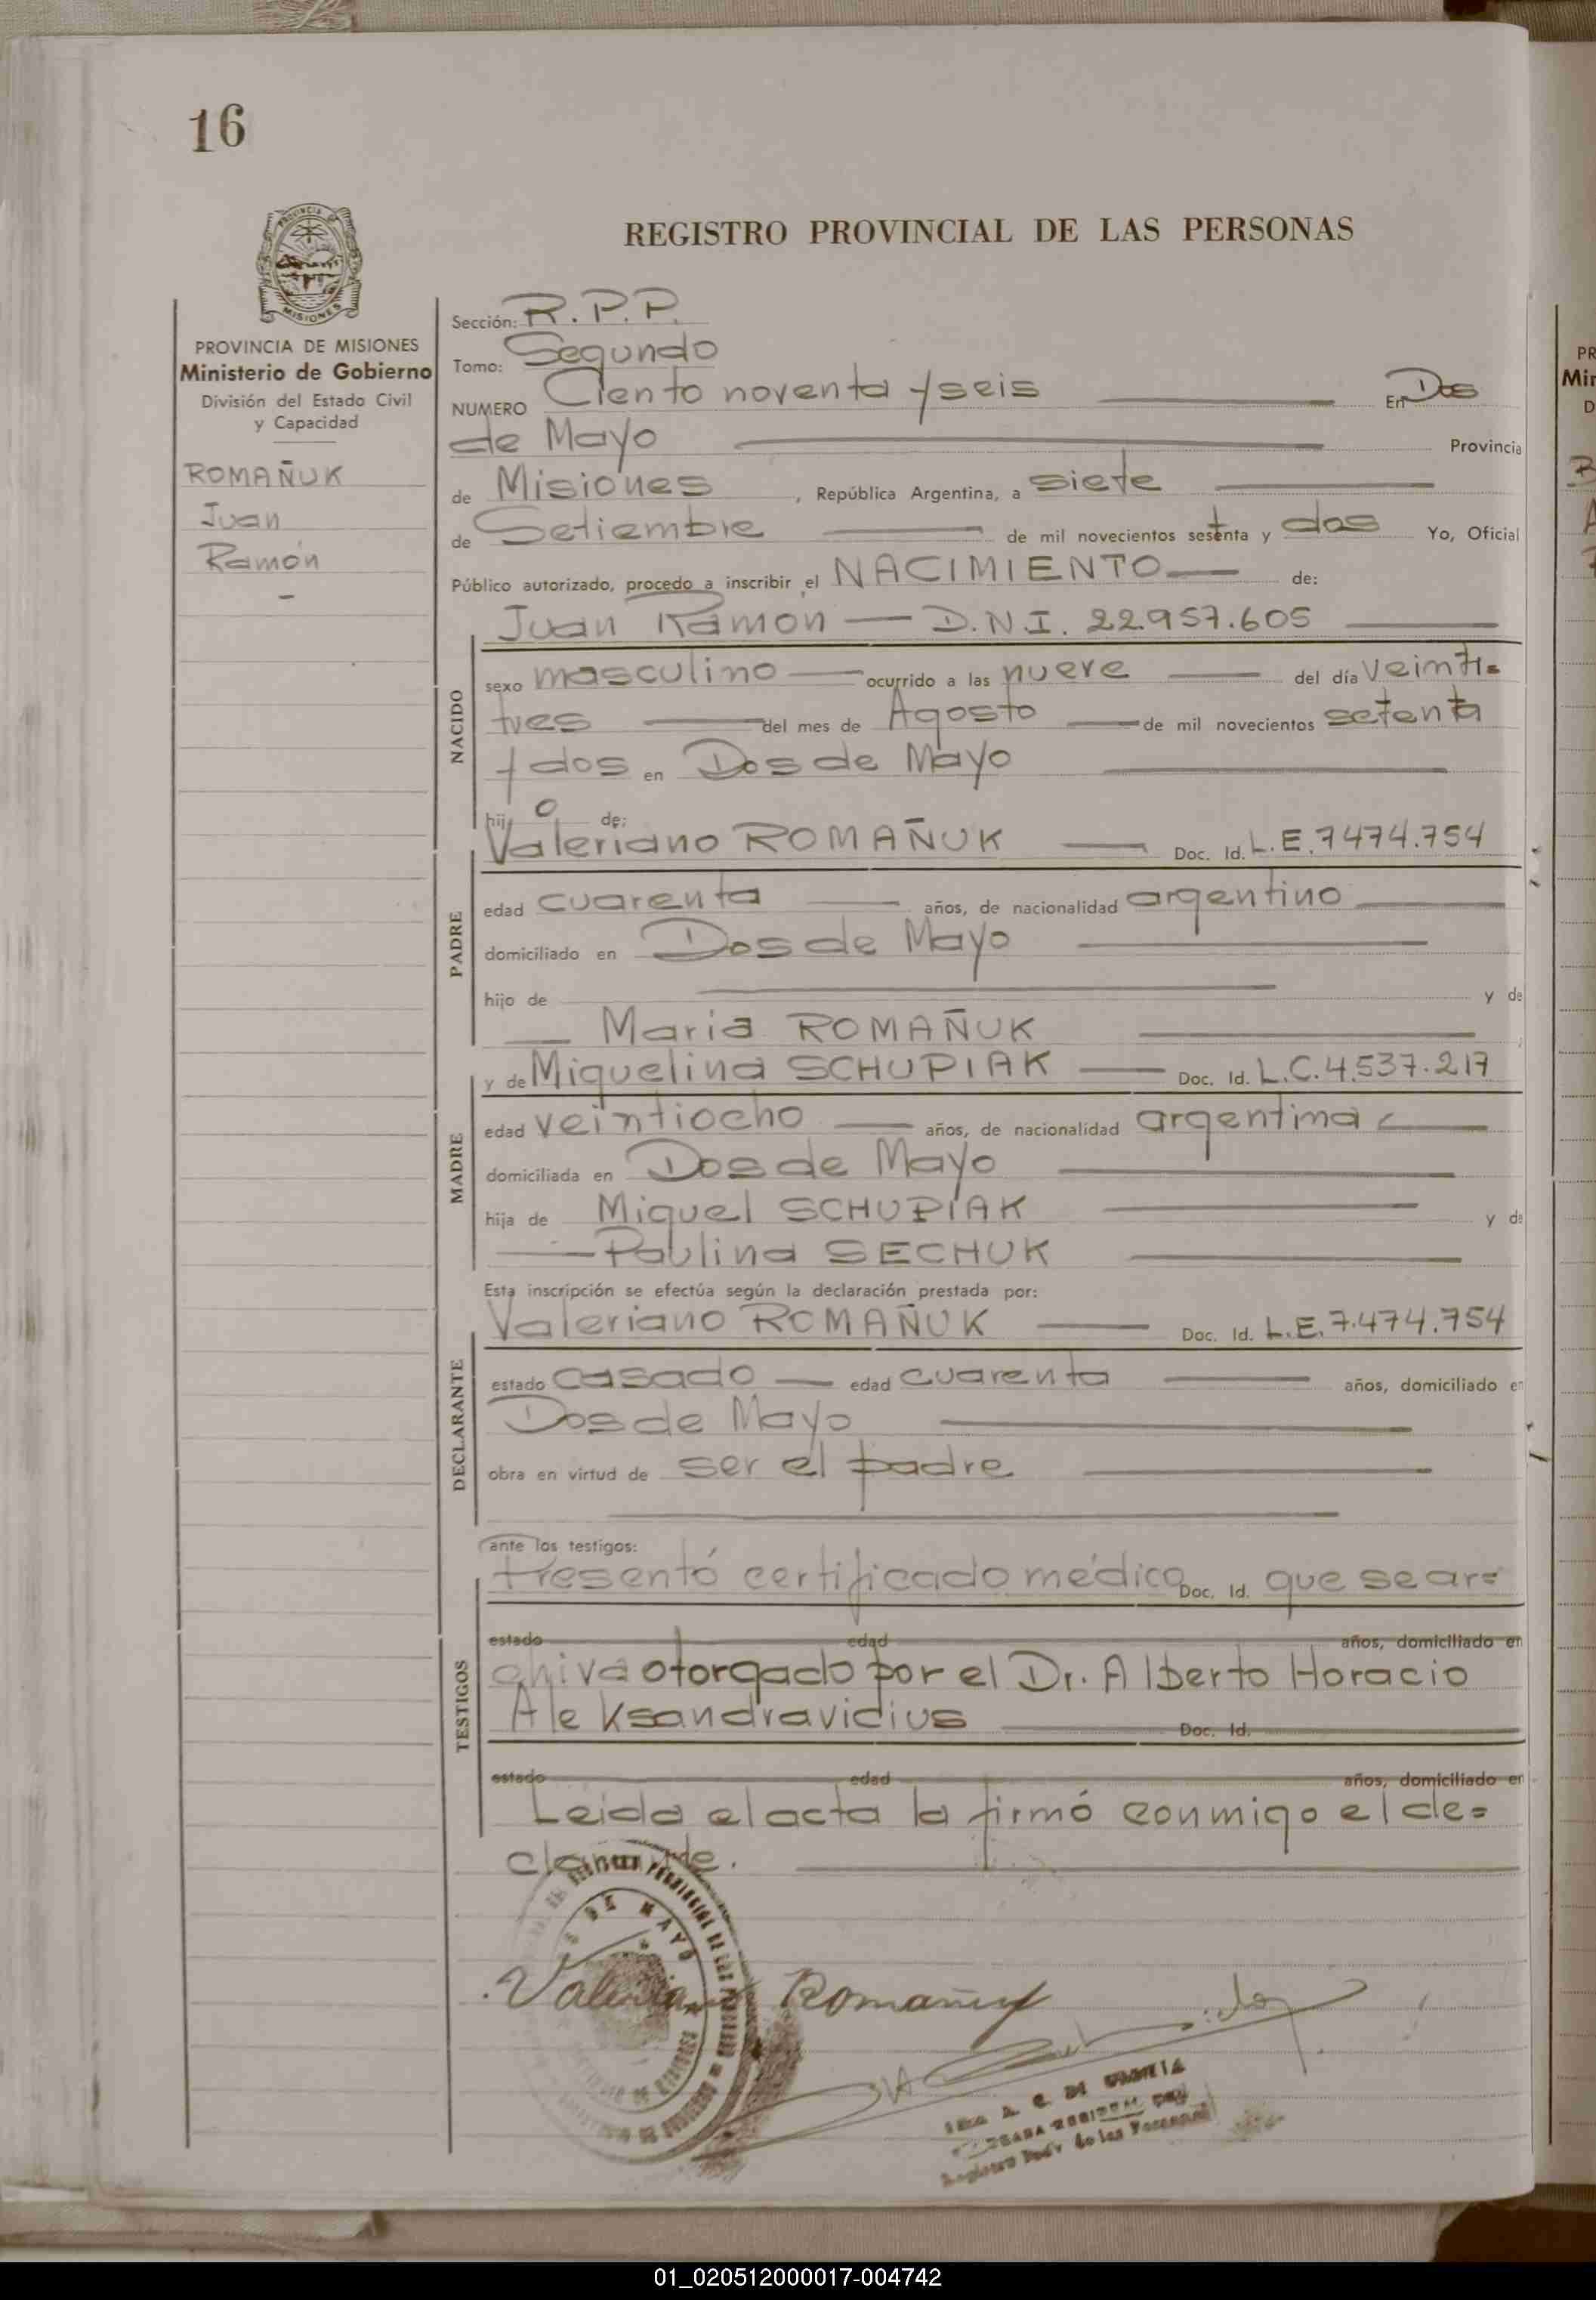 16
REGISTRO PROVINCIAL DE LAS PERSONAS
PROVINCIA DE MISIONES
Ministerio de Gobierno
División del Estado Civil
y Capacidad
ROMAÑUK
Juan
Ramón
Sección: R.P.P.
Tomo: Segundo
NUMERO Ciento noventa y seis En Dos
de Mayo Provincia
de Misiones, República Argentina, a siete
de Setiembre de mil novecientos setenta y dos Yo, Oficial
Público autorizado, procedo a inscribir el NACIMIENTO de:
Juan Ramón — D.N.I. 22.957.605
NACIDO
sexo masculino ocurrido a las nueve del día veinti=
tres del mes de Agosto de mil novecientos setenta
y dos en Dos de Mayo
hijo de:
PADRE
Valeriano ROMAÑUK Doc. Id. L.E. 7474.754
edad cuarenta años, de nacionalidad argentino
domiciliado en Dos de Mayo
hijo de y de
Maria ROMAÑUK
MADRE
y de Miquelina SCHUPIAK Doc. Id. L.C. 4.537.217
edad veintiocho años, de nacionalidad argentina
domiciliada en Dos de Mayo
hija de Miguel SCHUPIAK y de
Paulina SECHUK
Esta inscripción se efectúa según la declaración prestada por:
DECLARANTE
Valeriano ROMAÑUK Doc. Id. L.E. 7.474.754
estado casado edad cuarenta años, domiciliado en
Dos de Mayo
obra en virtud de ser el padre
ante los testigos:
TESTIGOS
Presentó certificado médico Doc. Id. que se ar=
estado edad años, domiciliado en
chiva otorgado por el Dr. Alberto Horacio
Aleksandravicius Doc. Id.
estado edad años, domiciliado en
Leida el acta la firmó conmigo el de=
clarante.
DE MAYO
Valeriano Romañuk
01_020512000017-004742